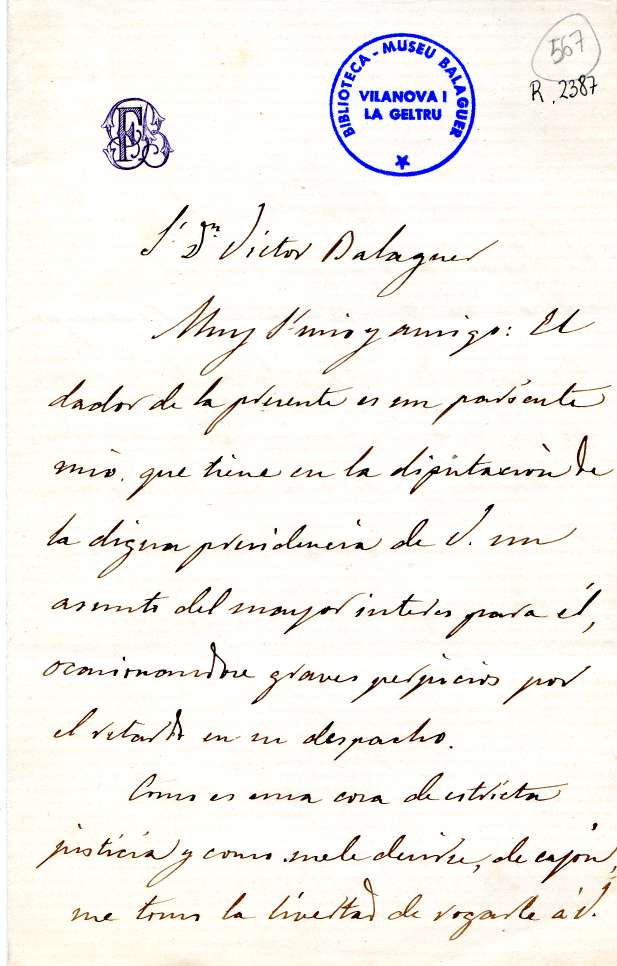 567
R. 2387
BIBLIOTECA - MUSEU BALAGUER
VILANOVA I
LA GELTRU
Sr. Dn. Victor Balaguer
Muy Sr mio y amigo: El
dador de la presente es un pariente
mio, que tiene en la diputación de
la digna presidencia de V. un
asunto del mayor interes para él,
ocasionandose graves perjuicios por
el retardo en su despacho.
Como es una cosa de estricta
justicia y como suele decirse, de cajón,
me tomo la livertad de rogarle á V.